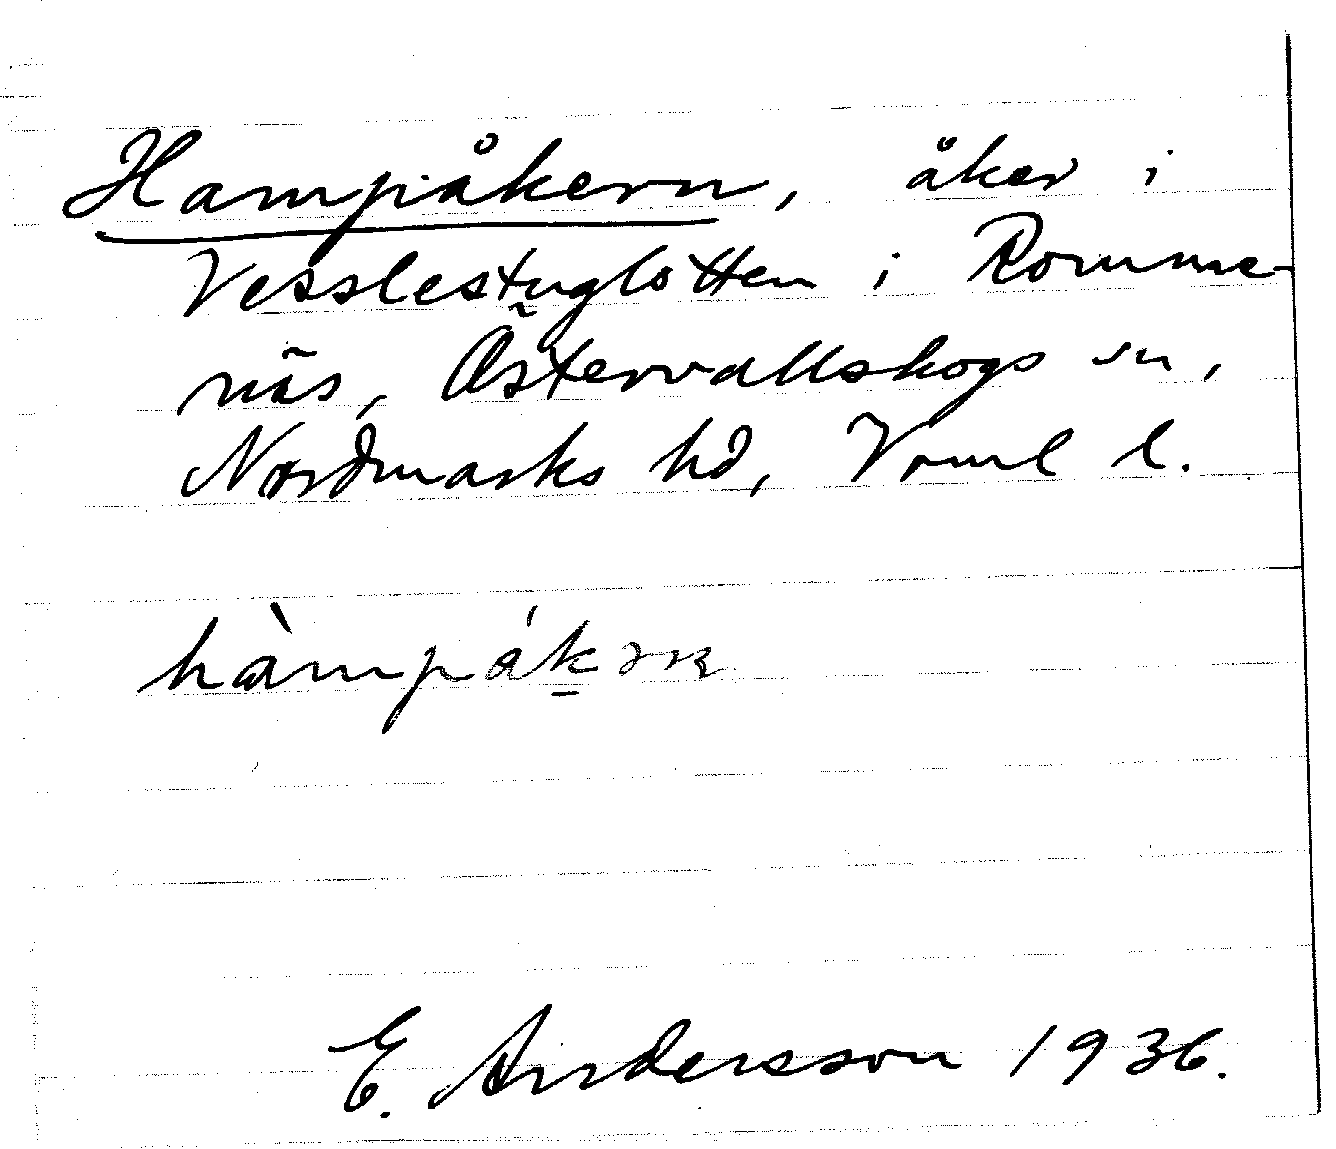 Hampåkern, åker i
Vesslestuglotten i Romme-
näs, Östervallskogs sn,
Nordmarks hd, Vrml l.
hàmpák
E. Andersson 1936.